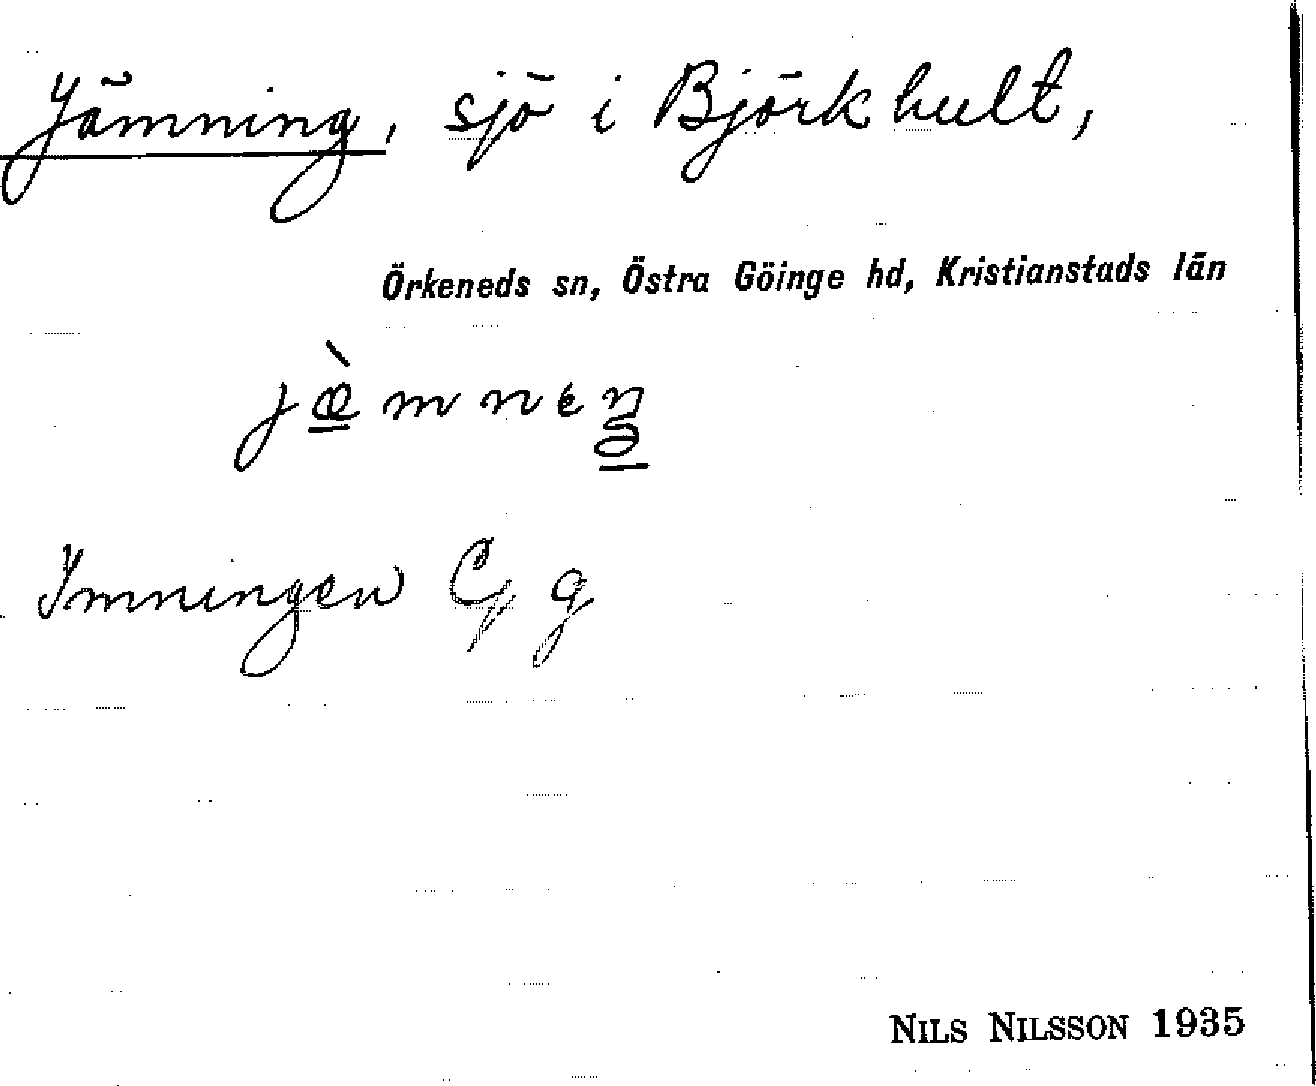 Jämning, sjö i Björkhult,
Örkeneds sn, Östra Göinge hd, Kristianstads län
jæ̀mneŋ
Ymningen
NILS NILSSON 1935